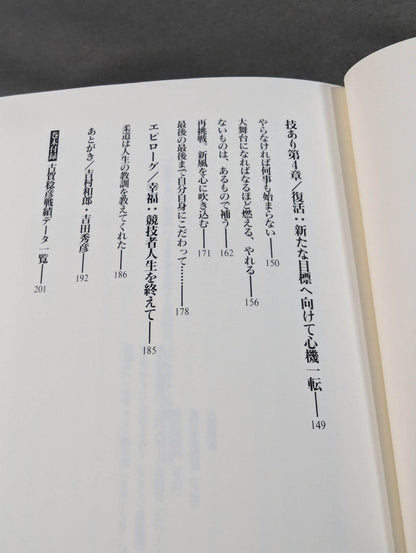 技あり第4章／復活：新たな目標へ向けて心機一転——149
やらなければ何事も始まらない——150
大舞台になればなるほど燃える、やれる——156
ないものは、あるもので補う——162
再挑戦。新風を心に吹き込む——171
最後の最後まで自分自身にこだわって……——178
エピローグ／幸福：競技者人生を終えて——185
柔道は人生の教訓を教えてくれた——186
あとがき／吉村和郎・吉田秀彦——192
巻末付録 古賀稔彦戦績データ一覧——201